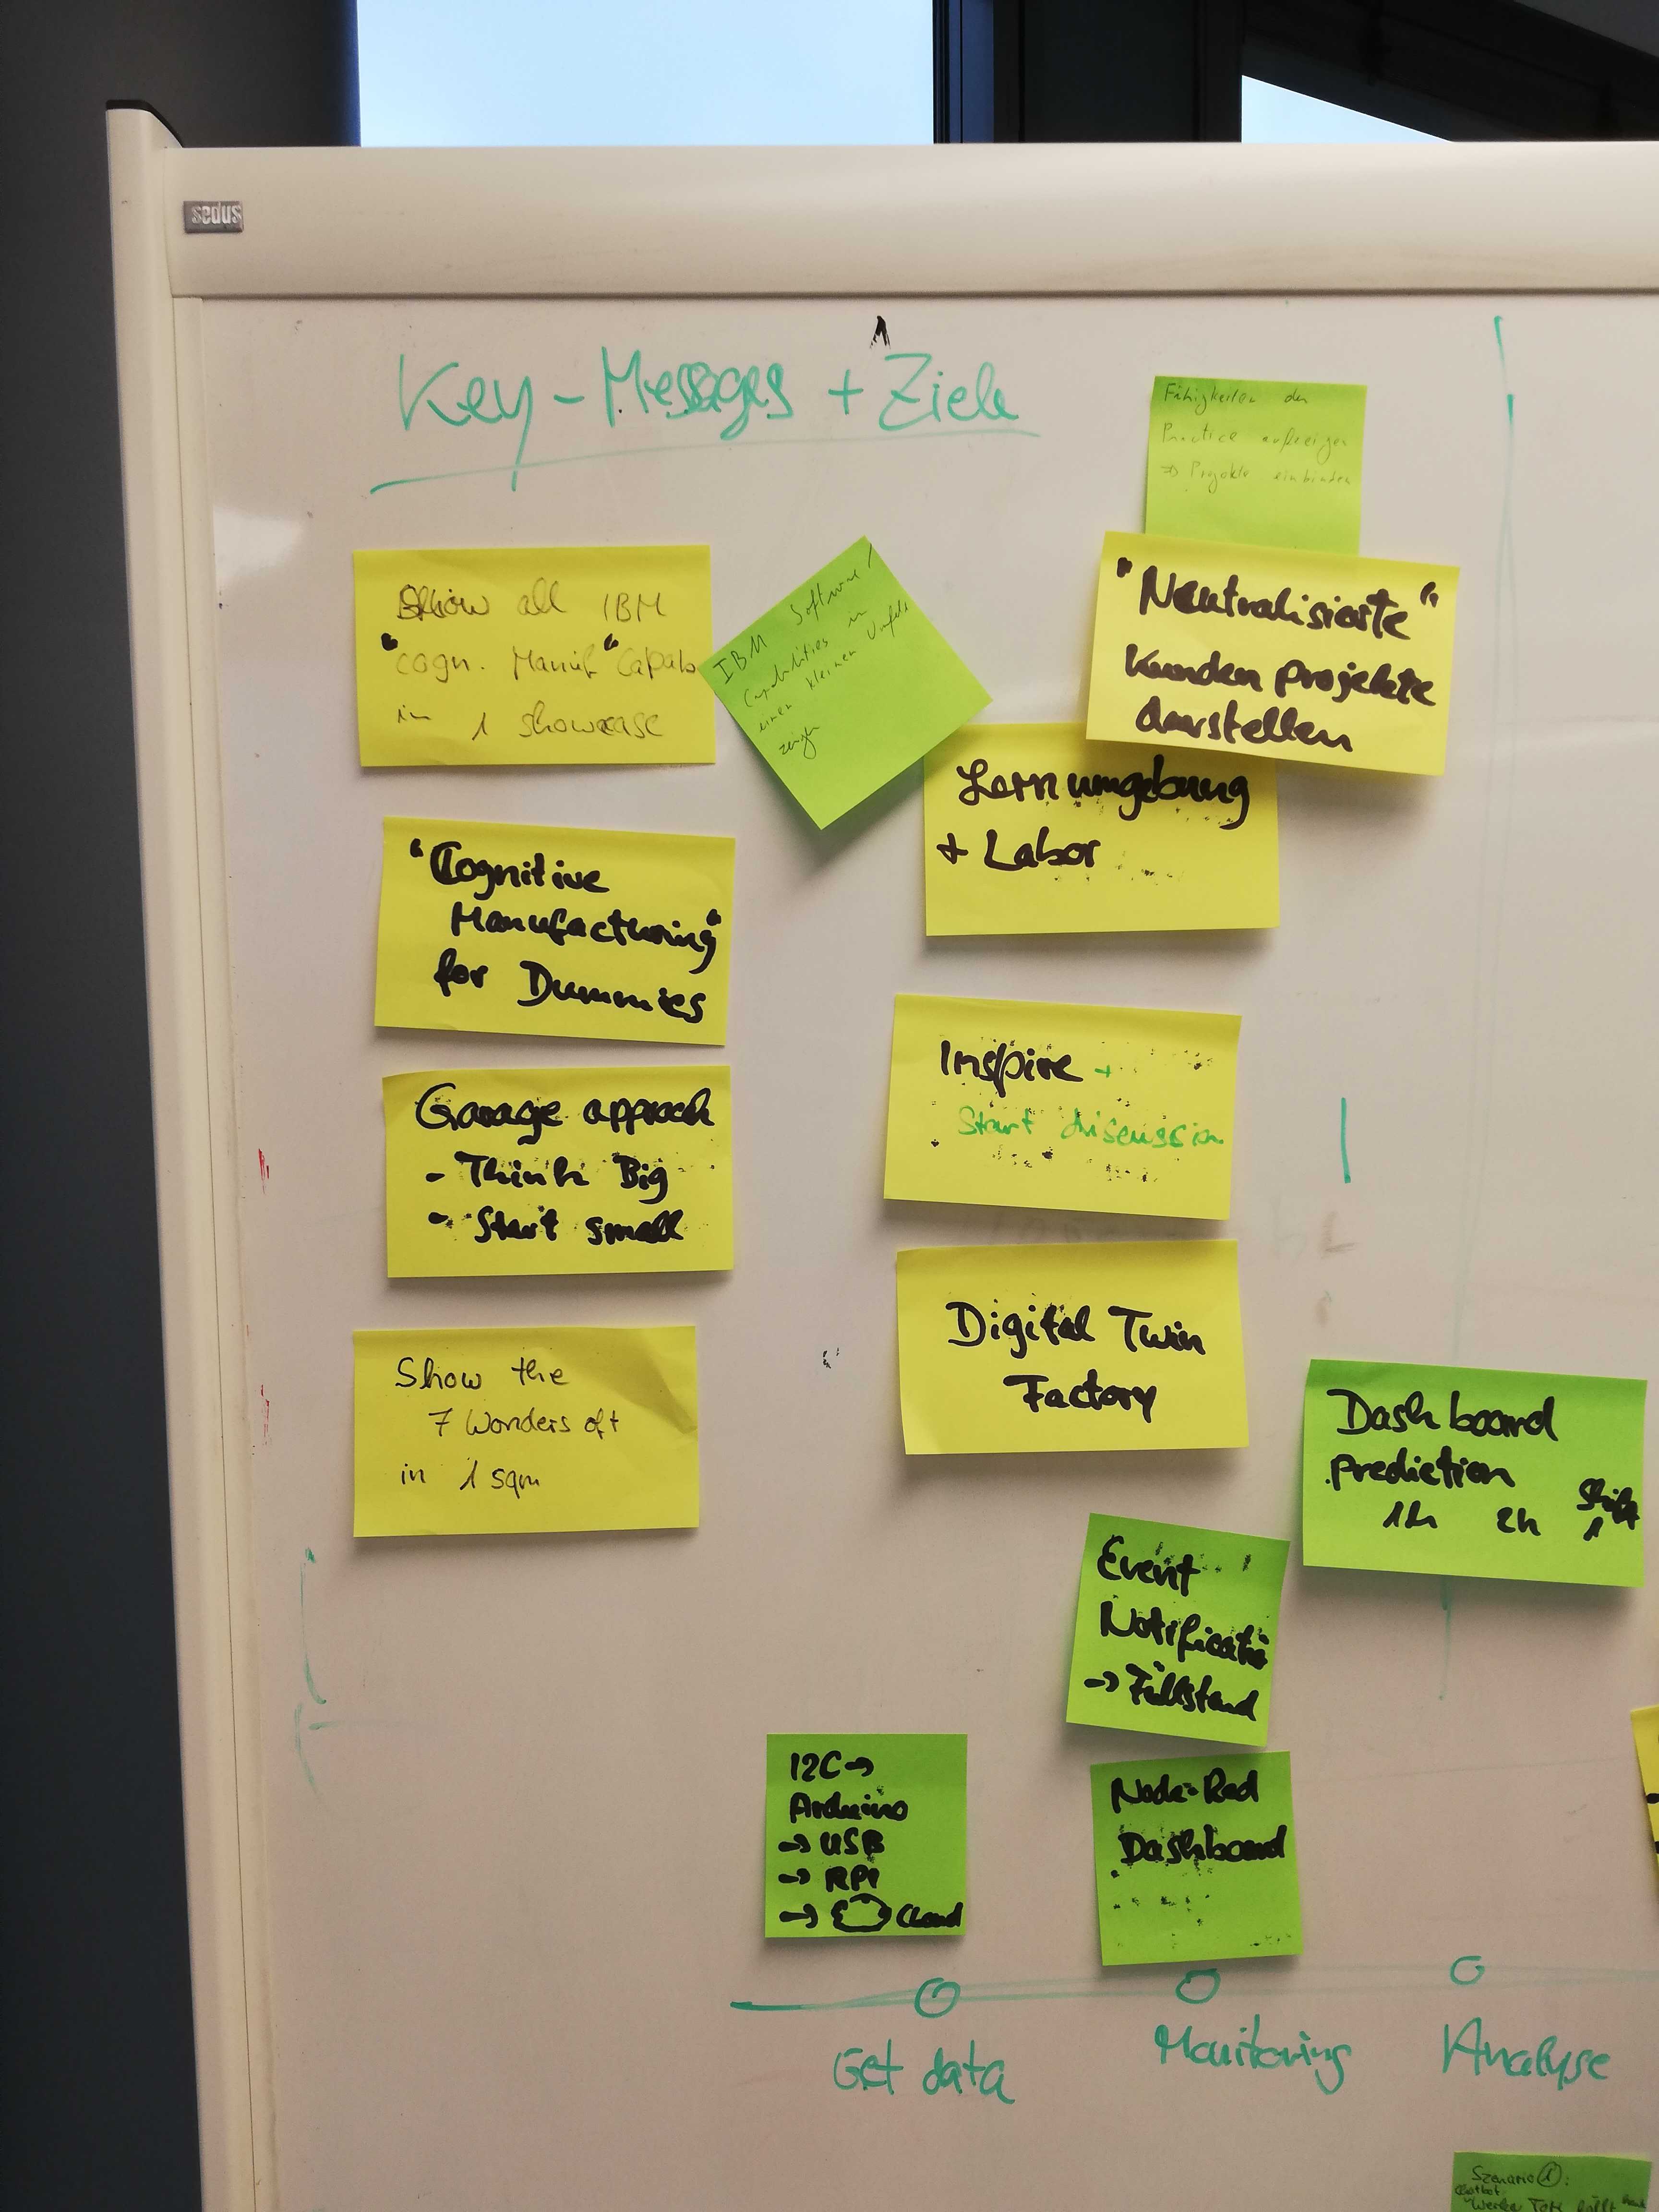 sedus
Key-Messages + Ziele
Fähigkeiten der
Practice aufzeigen
=> Projekte einbinden
Show all IBM
"cogn. Manuf" Capab
in 1 showcase
IBM Software/
Capabilities in
einem kleinen Umfeld
zeigen
"Neutralisierte"
Kunden projekte
darstellen
Lernumgebung
+ Labor
"Cognitive
Manufacturing"
for Dummies
Inspire +
Start discussion
Garage approach
- Think Big
- Start small
Digital Twin
Factory
Show the
7 Wonders oft
in 1 sqm
Dashboard
prediction
1h 2h Shift
1
Event
Notificatio
-> Füllstand
I2C ->
Arduino
-> USB
-> RPi
-> Cloud
Node-Red
Dashboard
Get data
Monitoring
Analyse
Szenario 1: